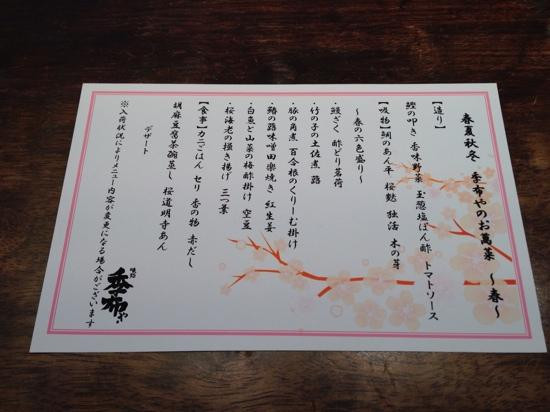 春夏秋冬 季布やのお萬菜 ～春～
【造り】
鰹の叩き 香味野菜 玉葱塩ぽん酢 トマトソース
【吸物】鯛のあん平 桜麩 独活 木の芽
～春の六色盛り～
・鰻ざく 酢どり茗荷
・竹の子の土佐煮 蕗
・豚の角煮 百合根のくりーむ掛け
・鰆の蕗味噌田楽焼き 紅生姜
・白魚と山菜の梅酢掛け 空豆
・桜海老の掻き揚げ 三つ葉
【食事】カニごはん セリ 香の物 赤だし
胡麻豆腐茶碗蒸し 桜道明寺あん
デザート
※入荷状況によりメニュー内容が変更になる場合がございます
季布や